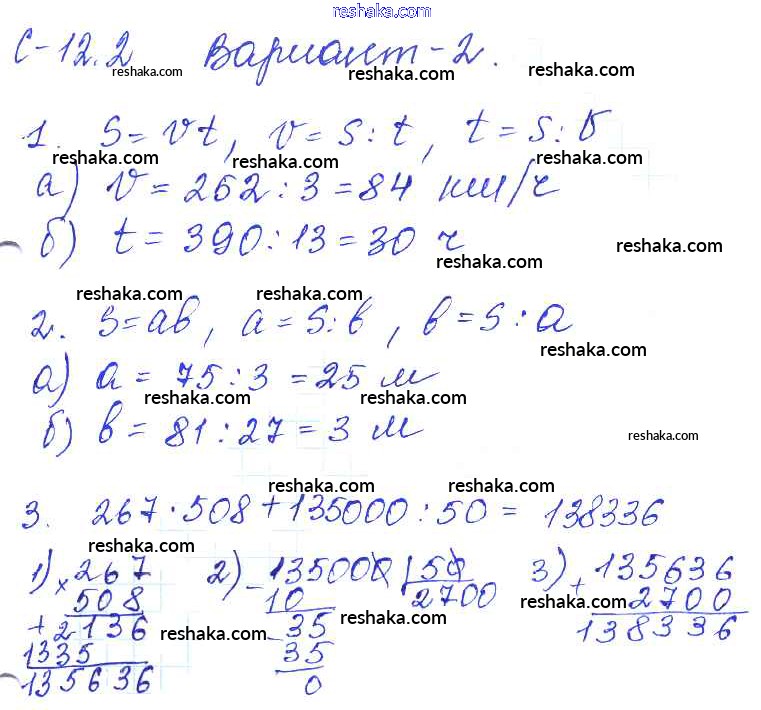 reshaka.com
С-12.2 Вариант-2.
reshaka.com reshaka.com reshaka.com
1. S=vt, v=S:t, t=S:v
reshaka.com reshaka.com reshaka.com
а) v=262:3=84 км/ч
б) t=390:13=30 ч
reshaka.com reshaka.com
reshaka.com reshaka.com
2. S=ab, a=S:b, b=S:a
reshaka.com
а) a=75:3=25 м
reshaka.com reshaka.com
б) b=81:27=3 м
reshaka.com
reshaka.com reshaka.com
3. 267·508+135000:50=138336
reshaka.com
1) ×267 2) –135000 |50 3) +135636
508 10 2700 reshaka.com 2700
+2136 reshaka.com –35 reshaka.com 138336
1335 35
135636 0
reshaka.com